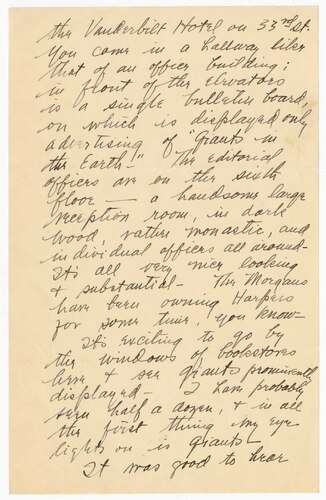 the Vanderbilt Hotel on 33rd St.
You come in a hallway like
that of an office building;
in front of the elevators
is a single bulletin board,
on which is displayed only
advertising of "Giants in
the Earth—" The editorial
offices are on the sixth
floor — a handsome large
reception room, in dark
wood, rather monastic, and
individual offices all around—
It's all very nice looking
& substantial— The Morgans
have been owning Harpers
for some time, you know—
It's exciting to go by
the windows of bookstores
here & see Giants prominently
displayed— I have probably
seen half a dozen, & in all
the first thing my eye
lights on is Giants—
It was good to hear